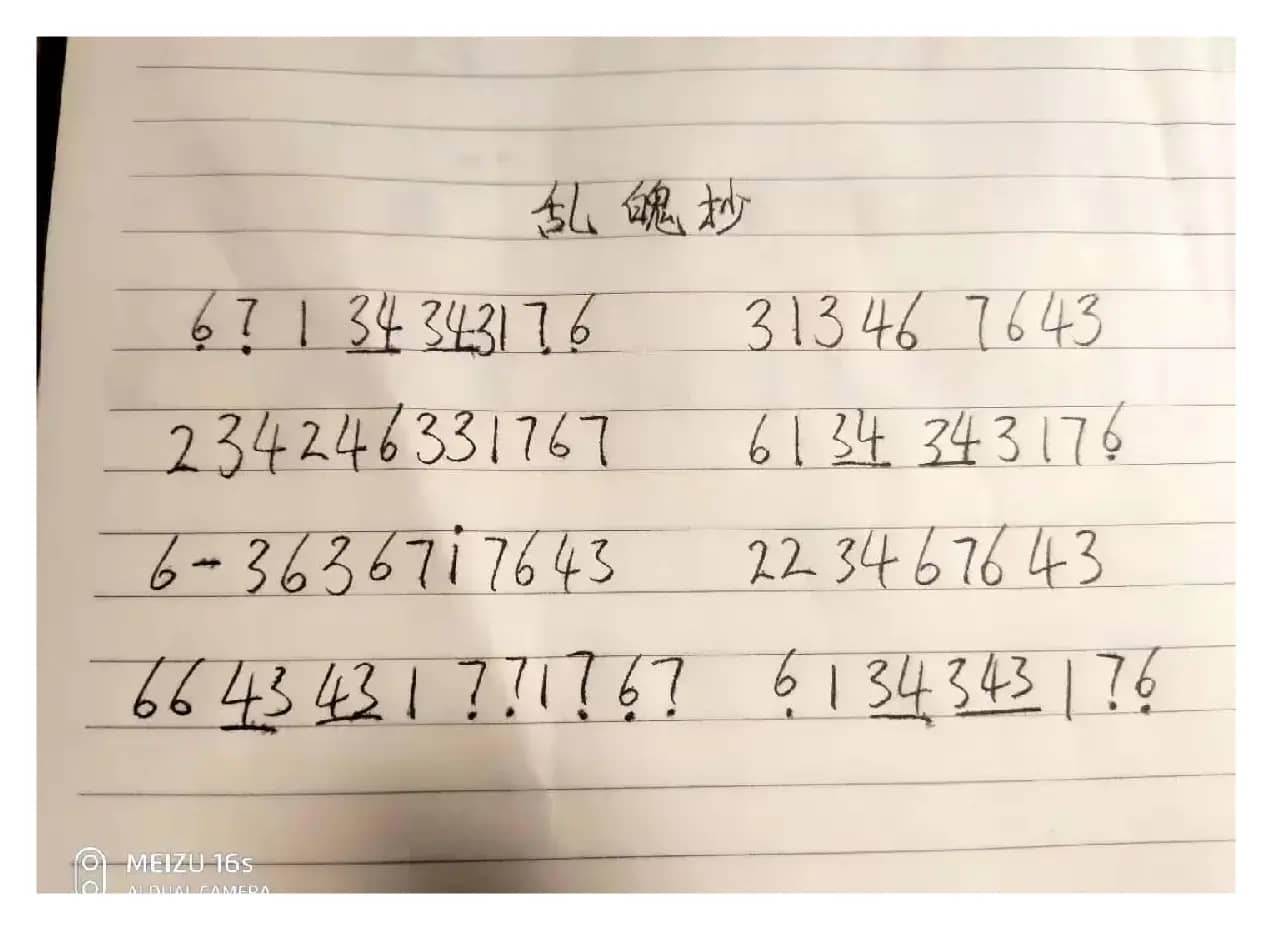 乱魄抄
6̣ 7̣ 1 3̲4̲ 3̲4̲3 1 7̣ 6̣    3 1 3 4 6 7 6 4 3
2 3 4 2 4 6 3 3 1 7 6 7    6 1 3̲4̲ 3̲4̲ 3 1 7 6̣
6 - 3 6 3 6 7 1̇ 7 6 4 3    2 2 3 4 6 7 6 4 3
6 6 4̲3̲ 4̲3̲ 1 7̣ 7̣ 1 7̣ 6̣ 7̣    6̣ 1 3̲4̲ 3̲4̲3̲ 1 7̣ 6̣
MEIZU 16s
AI DUAL CAMERA